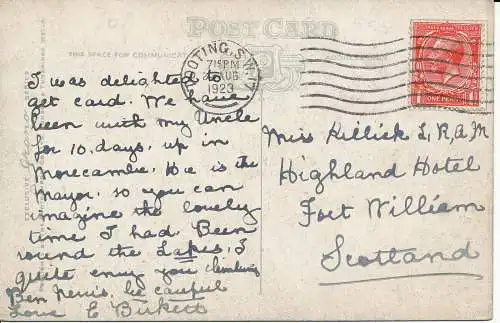 POST CARD
THIS SPACE FOR COMMUNICAT
TOOTING, S.W.17
7 15 PM
AUG
1923
ONE PENNY
I was delighted to
get card. We have
been with my Uncle
for 10. days, up in
Morecambe. He is the
Mayor, so you can
imagine the lovely
time I had. Been
round the Lakes. I
quite envy you climbing
Ben Nevis. be careful
Love E Birkett
Miss Killick L, R, A M
Highland Hotel
Fort William
Scotland